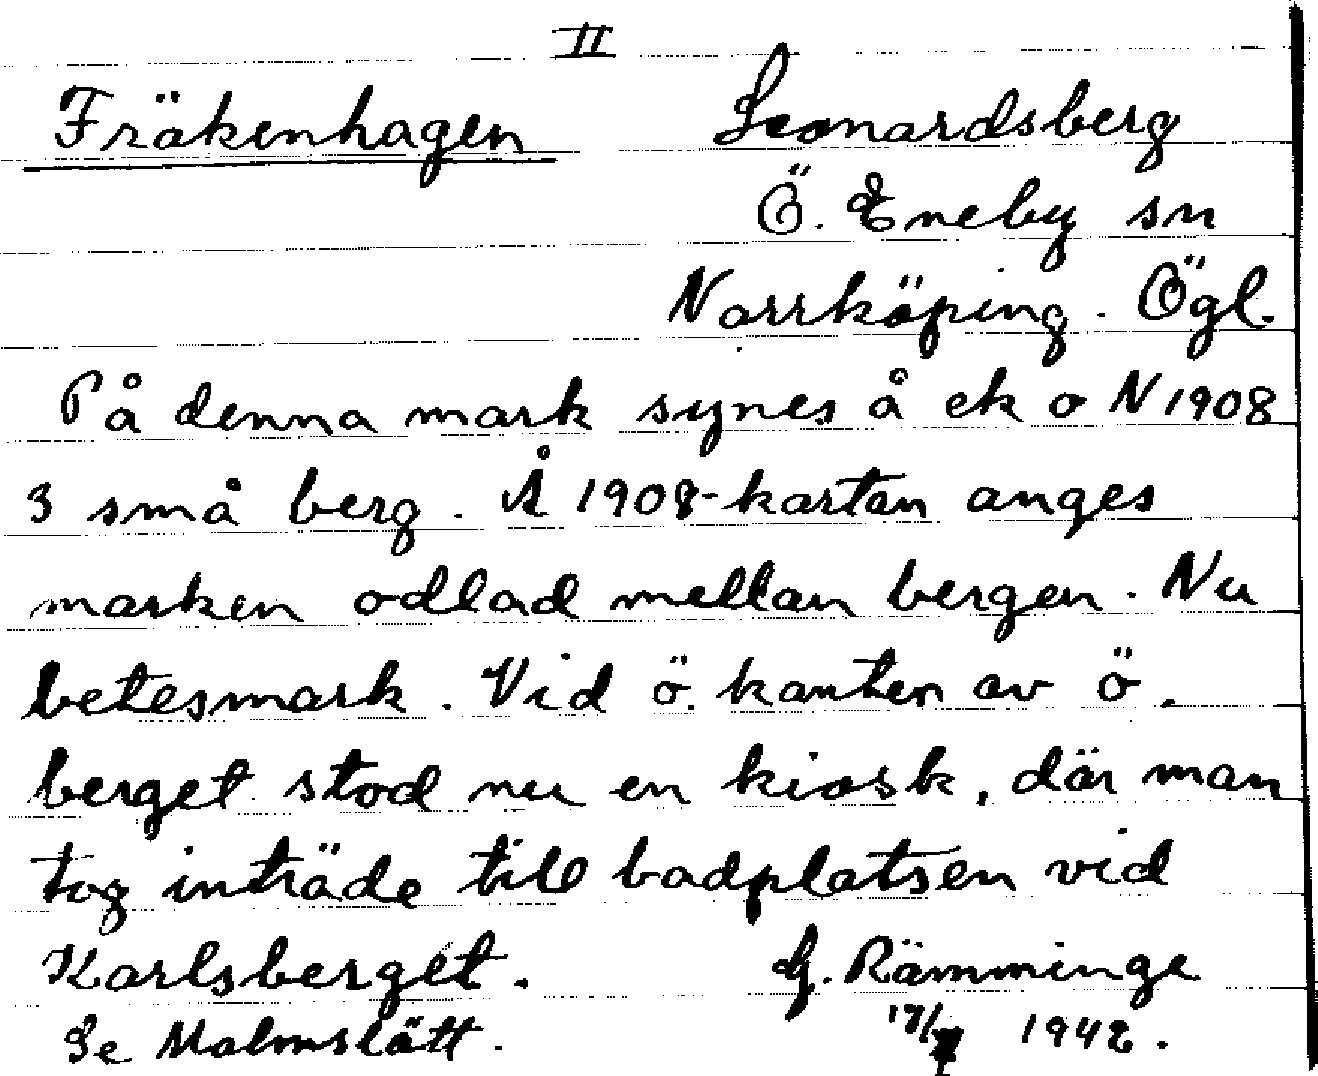 II
Fräkenhagen Leonardsberg
Ö. Eneby sn
Norrköping. Ögl.
På denna mark synes å ek o N 1908
3 små berg. Å 1908-kartan anges
marken odlad mellan bergen. Nu
betesmark. Vid ö. kanten av ö.
berget stod nu en kiosk, där man
tog inträde till badplatsen vid
Karlsberget. G. Rämminge
Se Malmslätt. 1942.